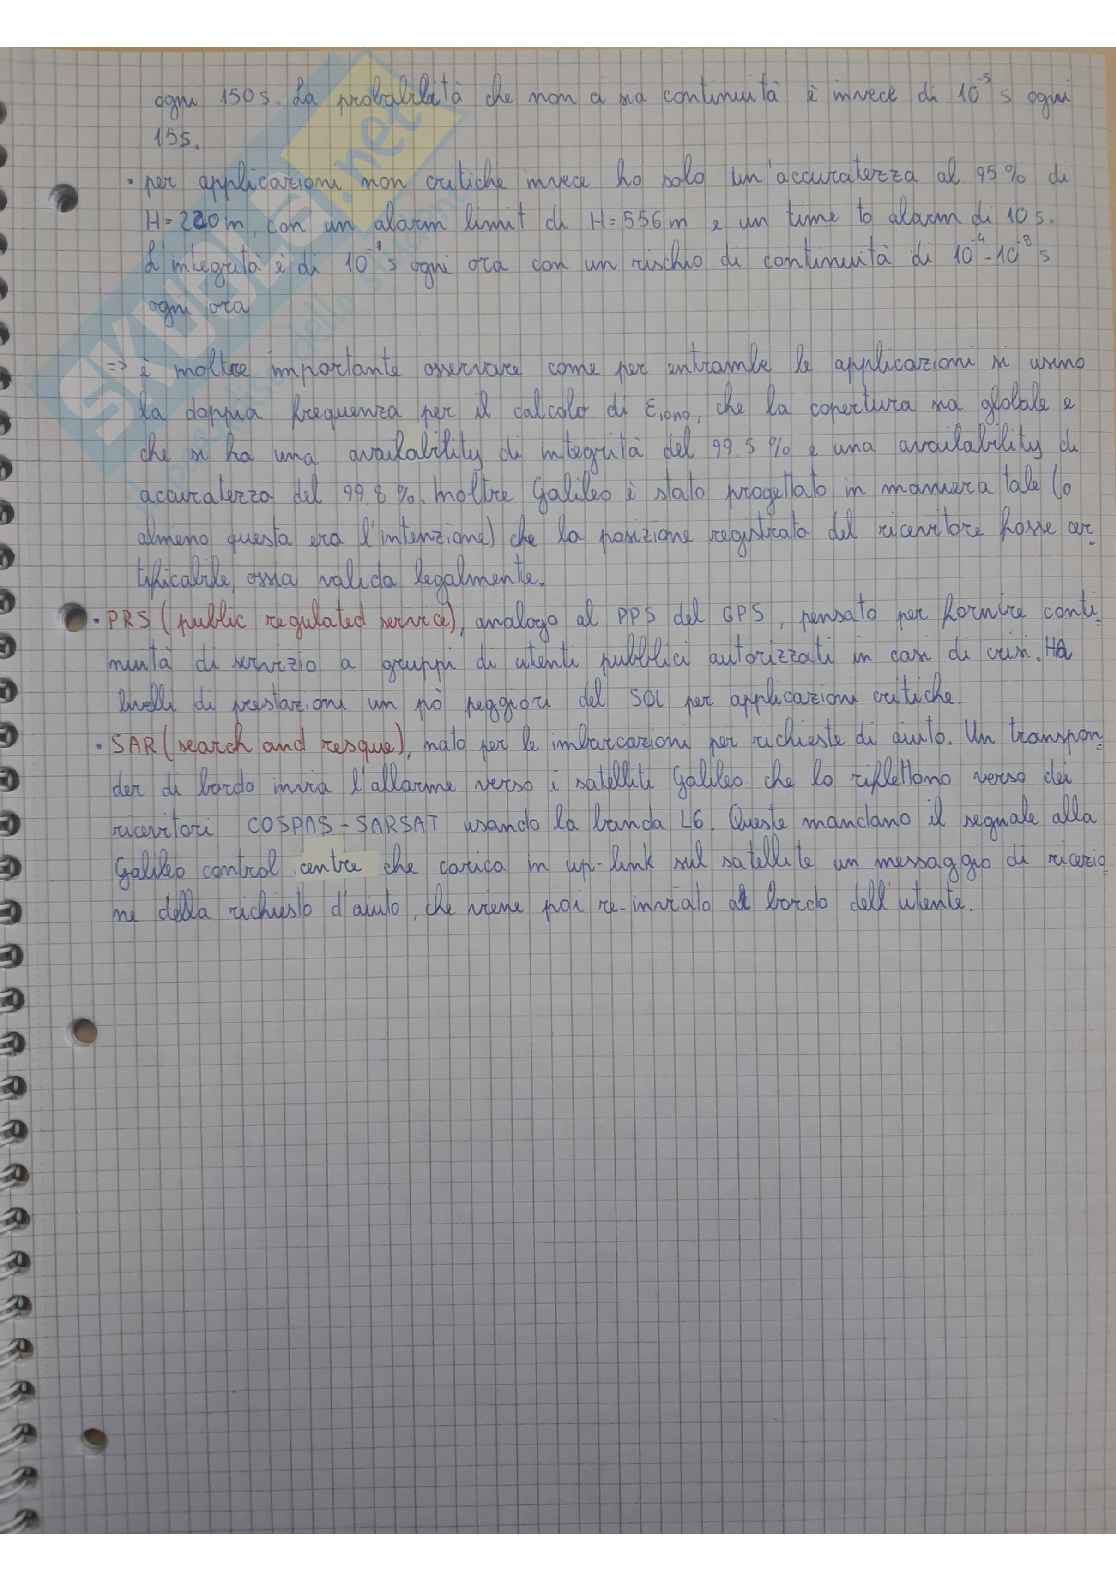 ogni 150 s. La probabilità che non ci sia continuità è invece di 10⁻⁵ s ogni
15s.
• per applicazioni non critiche invece ho solo un'accuratezza al 95% di
H=220m, con un alarm limit di H=556m e un time to alarm di 10 s.
L'integrità è di 10 s ogni ora con un rischio di continuità di 10⁻⁴-10⁻⁸ s
ogni ora
=> è inoltre importante osservare come per entrambe le applicazioni si usino
la doppia frequenza per il calcolo di Eiono, che la copertura sia globale e
che si ha una availability di integrità del 99.5% e una availability di
accuratezza del 99.8%. Inoltre Galileo è stato progettato in maniera tale (o
almeno questa era l'intenzione) che la posizione registrata del ricevitore fosse cer-
tificabile, ossia valida legalmente.
• PRS (public regulated service), analogo al PPS del GPS, pensato per fornire conti-
nuità di servizio a gruppi di utenti pubblici autorizzati in casi di crisi. Ha
livelli di prestazioni un pò peggiori del SOL per applicazioni critiche.
• SAR (search and resque), nato per le imbarcazioni per richieste di aiuto. Un transpon-
der di bordo invia l'allarme verso i satelliti Galileo che lo riflettono verso dei
ricevitori COSPAS-SARSAT usando la banda L6. Queste mandano il segnale alla
Galileo control centre che carica in up-link sul satellite un messaggio di ricezio-
ne della richiesta d'aiuto, che viene poi re-inviato al bordo dell'utente.
SKUOLA.net